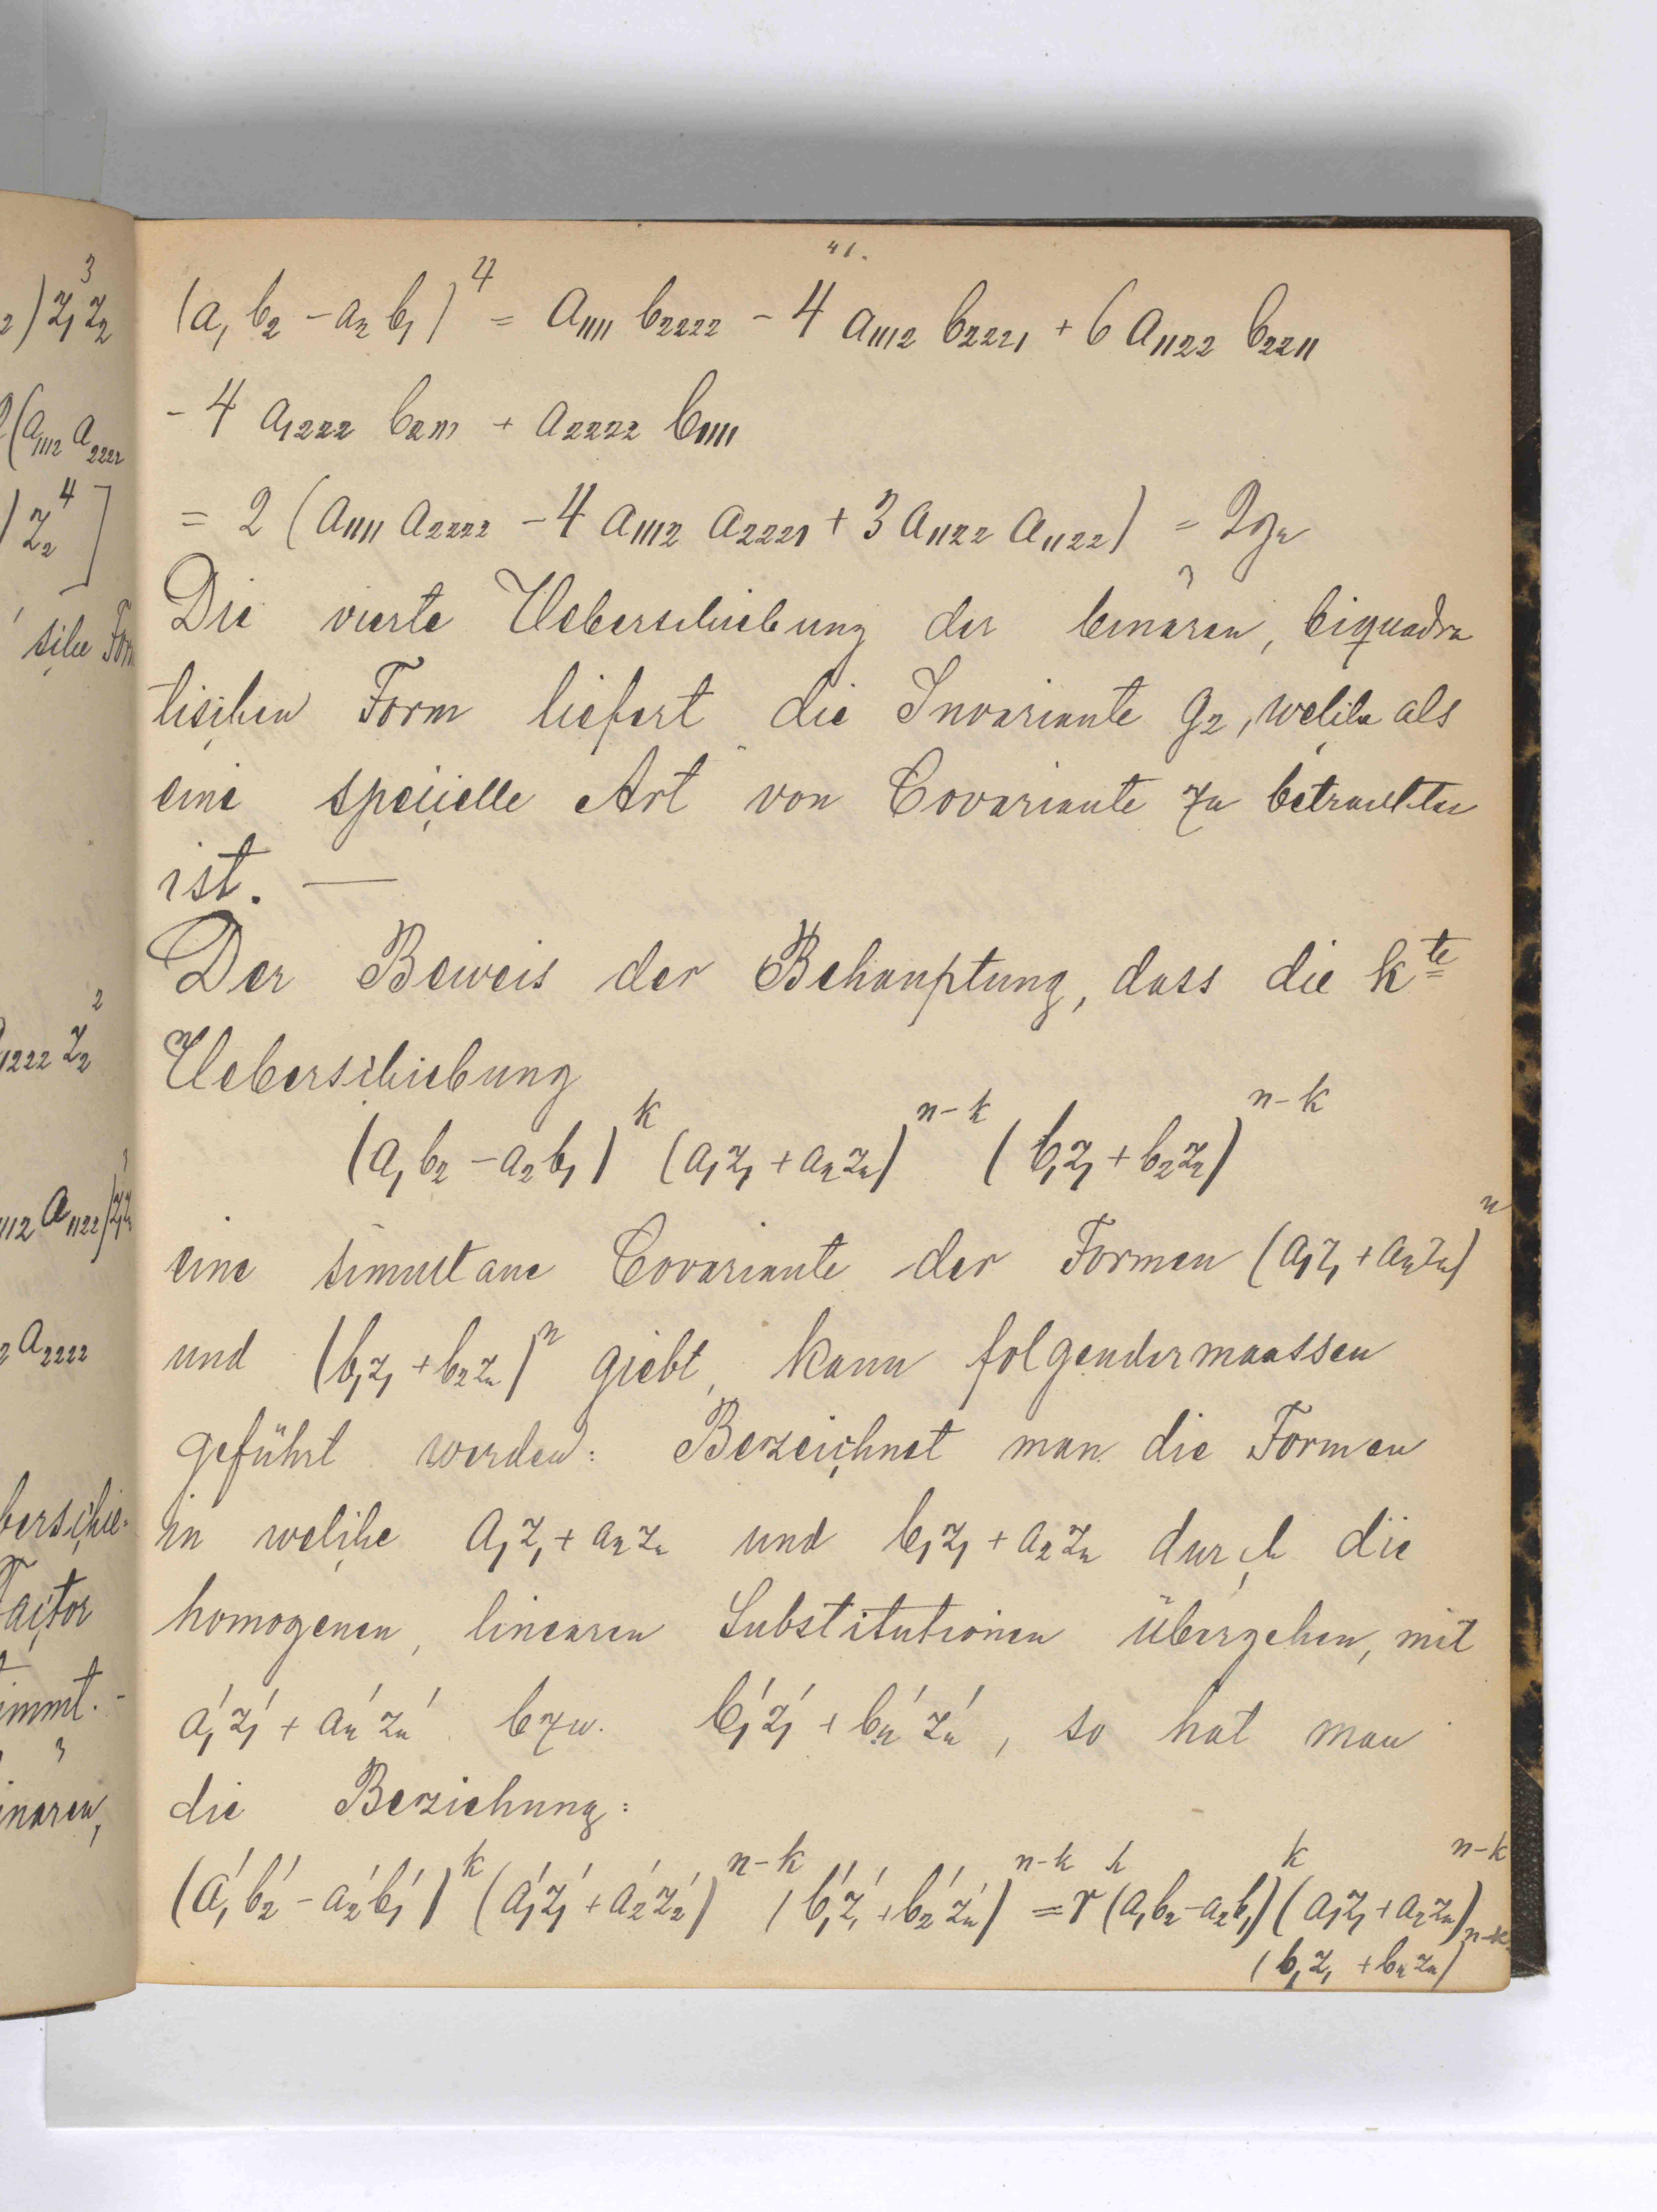 3
2) z₁ z₂
(a₁₁₁₂ a₂₂₂₂
) z₂⁴ ]
sche Form
a₁₂₂₂ z₂²
a₁₁₁₂ a₁₁₂₂) z₁
a₂₂₂₂
berschie-
Factor
immt. -
inären,
41.
(a₁ b₂ - a₂ b₁)⁴ = a₁₁₁₁ b₂₂₂₂ - 4 a₁₁₁₂ b₂₂₂₁ + 6 a₁₁₂₂ b₂₂₁₁
- 4 a₁₂₂₂ b₂₁₁₁ + a₂₂₂₂ b₁₁₁₁
= 2 (a₁₁₁₁ a₂₂₂₂ - 4 a₁₁₁₂ a₂₂₂₁ + 3 a₁₁₂₂ a₁₁₂₂) = 2g₂
Die vierte Ueberschiebung der binären, biquadra
tischen Form liefert die Invariante g₂, welche als
eine specielle Art von Covariante zu betrachten
ist. —
Der Beweis der Behauptung, dass die kᵗᵉ
Ueberschiebung
(a₁ b₂ - a₂ b₁)ᵏ (a₁z₁ + a₂z₂)ⁿ⁻ᵏ (b₁z₁ + b₂z₂)ⁿ⁻ᵏ
eine simultane Covariante der Formen (a₁z₁ + a₂z₂)ⁿ
und (b₁z₁ + b₂z₂)ⁿ giebt, kann folgendermaassen
geführt werden: Bezeichnet man die Formen
in welche a₁z₁ + a₂z₂ und b₁z₁ + a₂z₂ durch die
homogenen, linearen Substitutionen übergehen, mit
a₁'z₁' + a₂'z₂' bzw. b₁'z₁' + b₂'z₂', so hat man
die Beziehung:
(a₁'b₂' - a₂'b₁')ᵏ (a₁'z₁' + a₂'z₂')ⁿ⁻ᵏ (b₁'z₁' + b₂'z₂')ⁿ⁻ᵏ = rᵏ (a₁b₂ - a₂b₁)ᵏ (a₁z₁ + a₂z₂)ⁿ⁻ᵏ
(b₁z₁ + b₂z₂)ⁿ⁻ᵏ